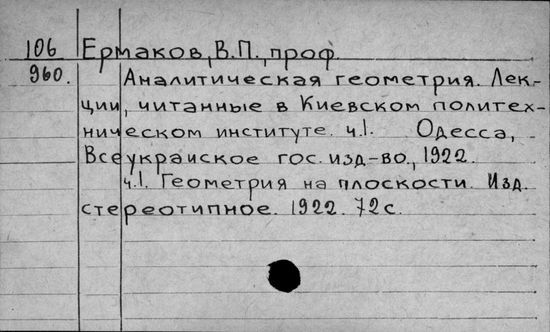 106 Ермаков, В.П., проф.
960. Аналитическая геометрия. Лек-
ции, читанные в Киевском политех-
ническом институте. ч.1. Одесса,
Всеукраиское гос. изд-во, 1922.
ч.1. Геометрия на плоскости. Изд.
стереотипное. 1922. 72 с.